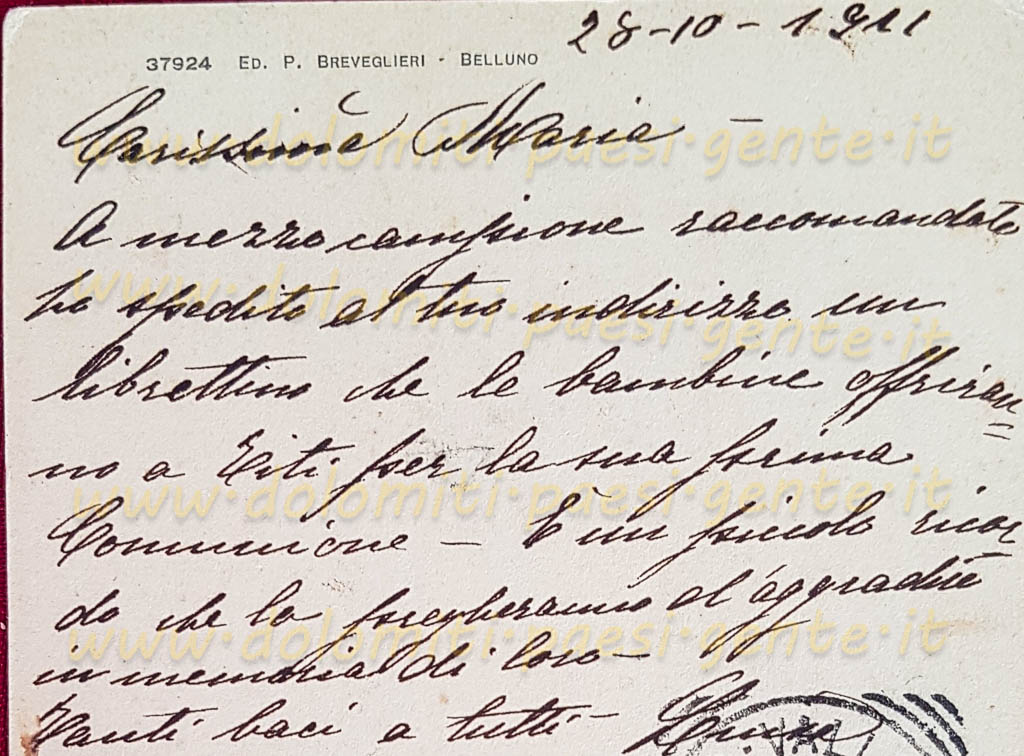 28-10-1911
37924 ED. P. BREVEGLIERI - BELLUNO
Carissima Maria -
A mezzo campione raccomandato
ho spedito al tuo indirizzo un
librettino che le bambine offriran=
no a Titi per la sua prima
Comunione - È un piccolo ricor
do che lo pregheranno d'aggradire
in memoria di loro -
Tanti baci a tutti -
www·dolomiti·paesi·gente·it
www·dolomiti·paesi·gente·it
www·dolomiti·paesi·gente·it
www·dolomiti·paesi·gente·it